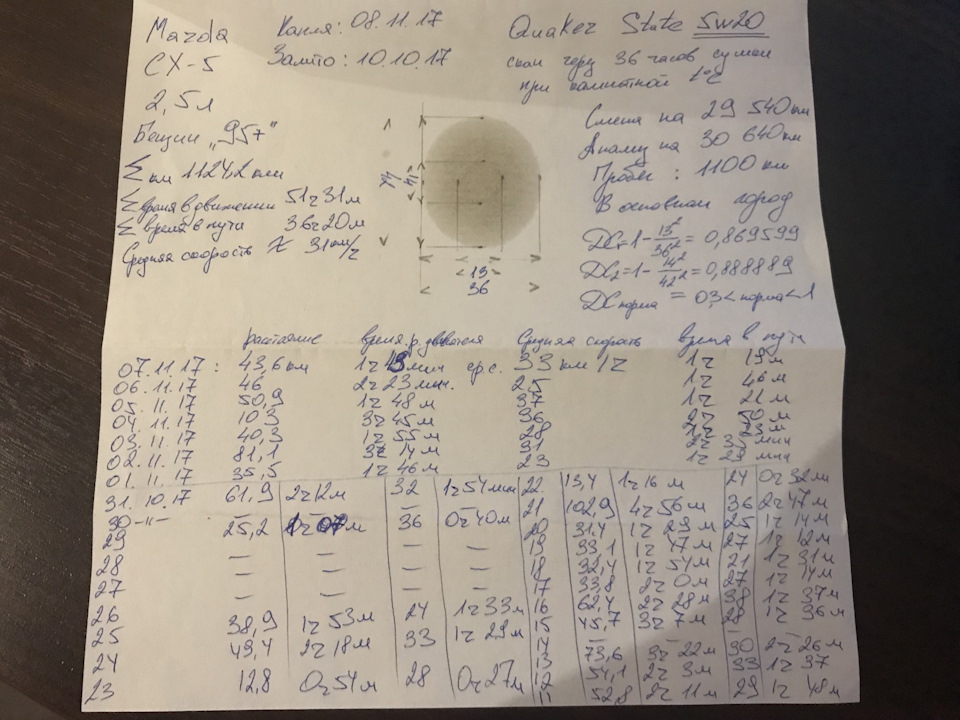 Mazda
CX-5
2,5л
Бензин „95"
Σ км 1124,2 км
Σ время в движении 51ч31м
Σ время в пути 36ч20м
Средняя скорость ≈ 31км/ч
Капля: 08.11.17
Залито: 10.10.17
Quaker State 5W20
скан через 36 часов сушки
при комнатной t°C
Смена на 29 540км
Анализ на 30 640км
Пробег: 1100км
В основном город
DC1=1-13²/36²=0,869599
DC2=1-14²/42²=0,888889
DC норма = 0,3<норма<1
13
36
расстояние время р. двигателя Средняя скорость время в пути
07.11.17: 43,6км ср.с. 33 км/ч 1ч 19м
06.11.17 46 2ч 23мин. 25 1ч 46м
05.11.17 50,9 1ч 48м 37 1ч 21м
04.11.17 10,3 3ч 45м 36 50м
03.11.17 40,3 1ч 55м 28 23м
02.11.17 81,1 3ч 14м мин
01.11.17 35,5 1ч 46м 23 1ч мин
31.10.17 61,9 2ч12м 32 1ч54мин
30 -"- — — — —
29 25,2 м 36 0ч40м
28 — — — —
27 — — — —
26 — — — —
25 38,9 1ч53м 24 1ч33м
24 49,4 2ч18м 33 1ч29м
23 12,8 0ч54м 28 0ч27м
22 13,4 1ч16м 24 0ч32м
21 102,9 4ч56м 36 2ч47м
20 31,4 1ч29м 25 1ч14м
19 33,1 1ч47м 27 1ч12м
18 32,4 1ч54м 21 1ч31м
17 33,8 2ч0м 27 1ч14м
16 62,4 2ч28м 38 1ч37м
15 45,7 3ч7м 28 1ч36м
14 — — — —
13 73,6 3ч22м 30 2ч26м
12 54,1 2ч3м 33 1ч37
11 52,8 2ч11м 29 1ч48м